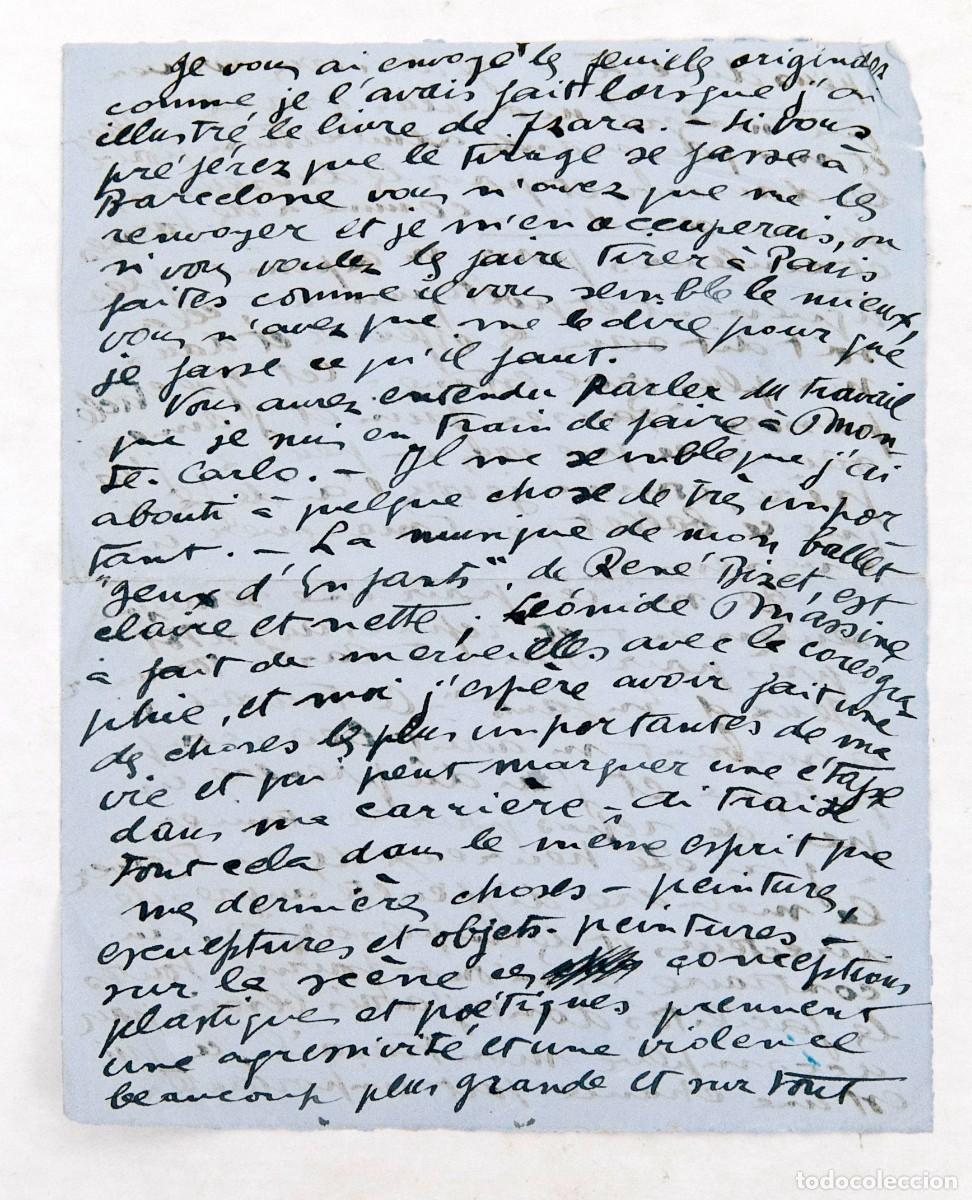 Je vous ai envoyé les feuilles originales
comme je l'avais fait lorsque j'ai
illustré le livre de Tzara. – Si vous
préférez que le tirage se fasse à
Barcelone vous n'avez que me les
renvoyer et je m'en occuperais, ou
si vous voulez les faire tirer à Paris
faites comme il vous semble le mieux,
vous n'avez que me le dire pour que
je fasse ce qu'il faut. –
Vous aurez entendu parler du travail
que je suis en train de faire à Mon
te. Carlo. – Il me semble que j'ai
abouti à quelque chose de très impor
tant. – La musique de mon ballet
"Jeux d'Enfants", de René Bizet, est
claire et nette; Léonide Massine
à fait de merveilles avec la coreogra-
phie, et moi j'espère avoir fait une
des choses les plus importantes de ma
vie et qui peut marquer une étape
dans ma carrière –
tout cela dans le même esprit que
mes dernières choses – peintures,
esculptures et objets. peintures –
sur la scène ces conceptions
plastiques et poétiques prennent
une agressivité et une violence
beaucoup plus grande et sur tout
todocoleccion